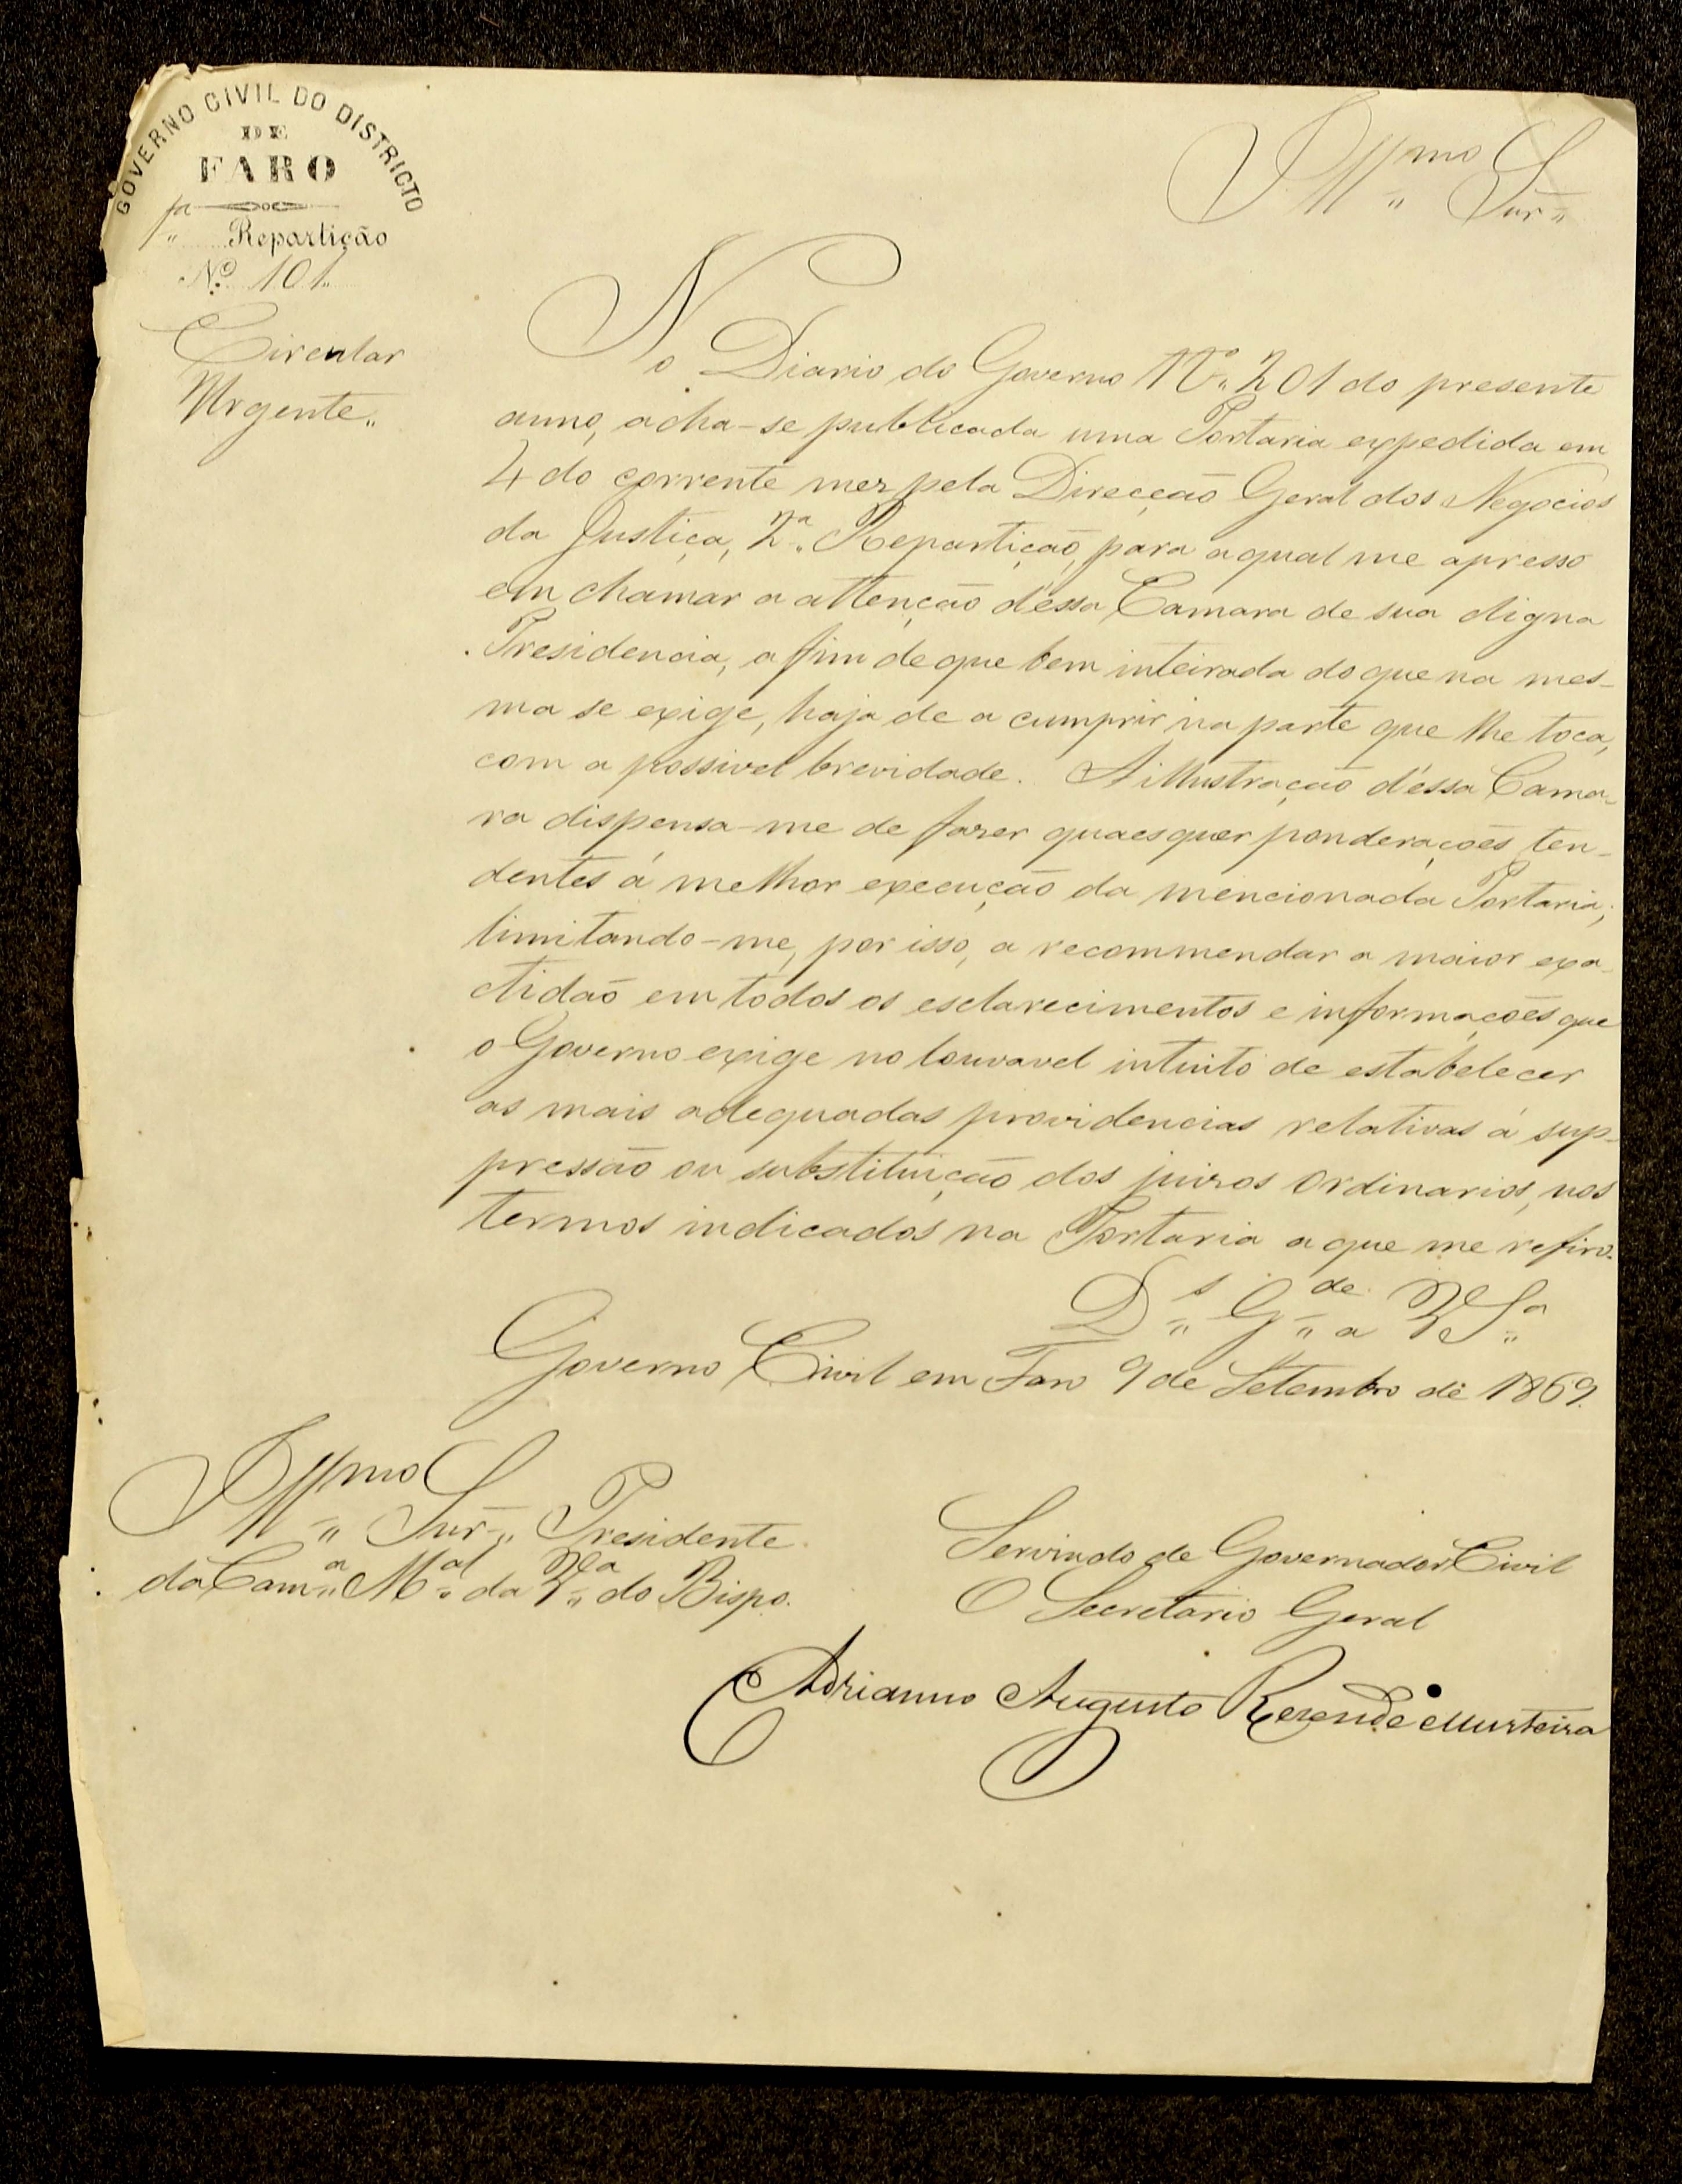 GOVERNO CIVIL DO DISTRICTO
DE
FARO
1ª Repartição
Nº 101
Circular
Urgente
Illmo Snr
No Diario do Governo Nº 201 do presente
anno, acha-se publicada uma Portaria expedida em
4 do corrente mez pela Direcção Geral dos Negocios
da Justiça, 2ª Repartição, para a qual me apresso
em chamar a attenção d'essa Camara de sua digna
Presidencia, a fim de que bem inteirada do que na mes-
ma se exige, haja de a cumprir na parte que lhe toca,
com a possivel brevidade. A illustração d'essa Cama-
ra dispensa-me de fazer quaesquer ponderações ten-
dentes á melhor execução da mencionada Portaria;
limitando-me, por isso, a recommendar a maior exa-
ctidão em todos os esclarecimentos e informações que
o Governo exige no louvavel intuito de estabelecer
as mais adequadas providencias relativas á sup-
pressão ou substituição dos juizos ordinarios, nos
termos indicados na Portaria a que me refiro.
Ds Gde a V Sa
Governo Civil em Faro 9 de Setembro de 1869.
Illmo Snr Presidente
da Camª Mal da Vª do Bispo.
Servindo de Governador Civil
O Secretario Geral
Adrianno Augusto Rezende Murteira